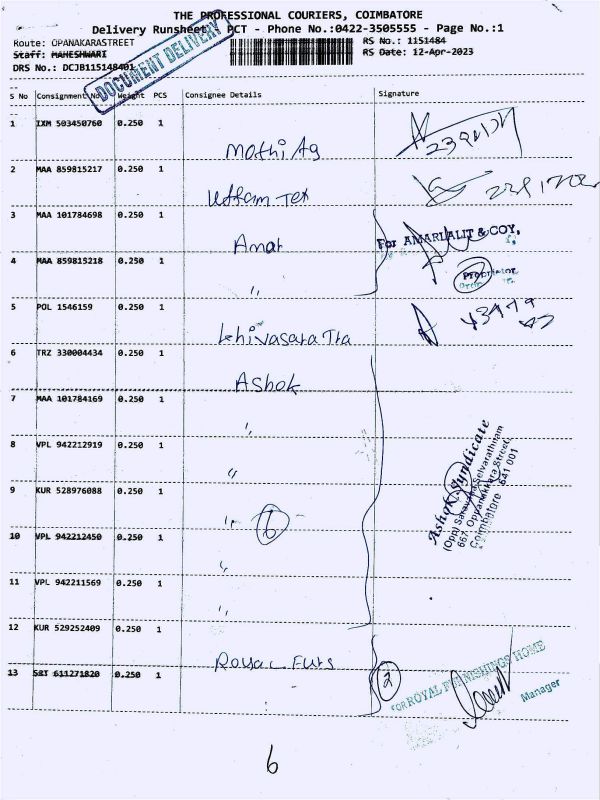 THE PROFESSIONAL COURIERS, COIMBATORE
Delivery Runsheet PCT - Phone No.:0422-3505555 - Page No.:1
DOCUMENT DELIVERY
Route: OPANAKARASTREET
RS No.: 1151484
Staff: MAHESHWARI
RS Date: 12-Apr-2023
DRS No.: DCJB115148401
S No Consignment No Weight PCS Consignee Details Signature
1 IXM 503450760 0.250 1
Mathi Ag
2 MAA 859815217 0.250 1
Uttam Tex
3 MAA 101784698 0.250 1
Amar
For AMARLALIT & COY,
4 MAA 859815218 0.250 1
Proprietor
"
5 POL 1546159 0.250 1
khivasara Tra
6 TRZ 330004434 0.250 1
Ashok
7 MAA 101784169 0.250 1
"
8 VPL 942212919 0.250 1
"
Ashok Syndicate
667, Oppanakkara Street,
Coimbatore - 641 001
9 KUR 528976088 0.250 1
" 6
10 VPL 942212450 0.250 1
"
11 VPL 942211569 0.250 1
"
12 KUR 529252409 0.250 1
Royal Furs
13 SRT 611271820 0.250 1
2
For ROYAL FURNISHINGS HOME
Manager
6